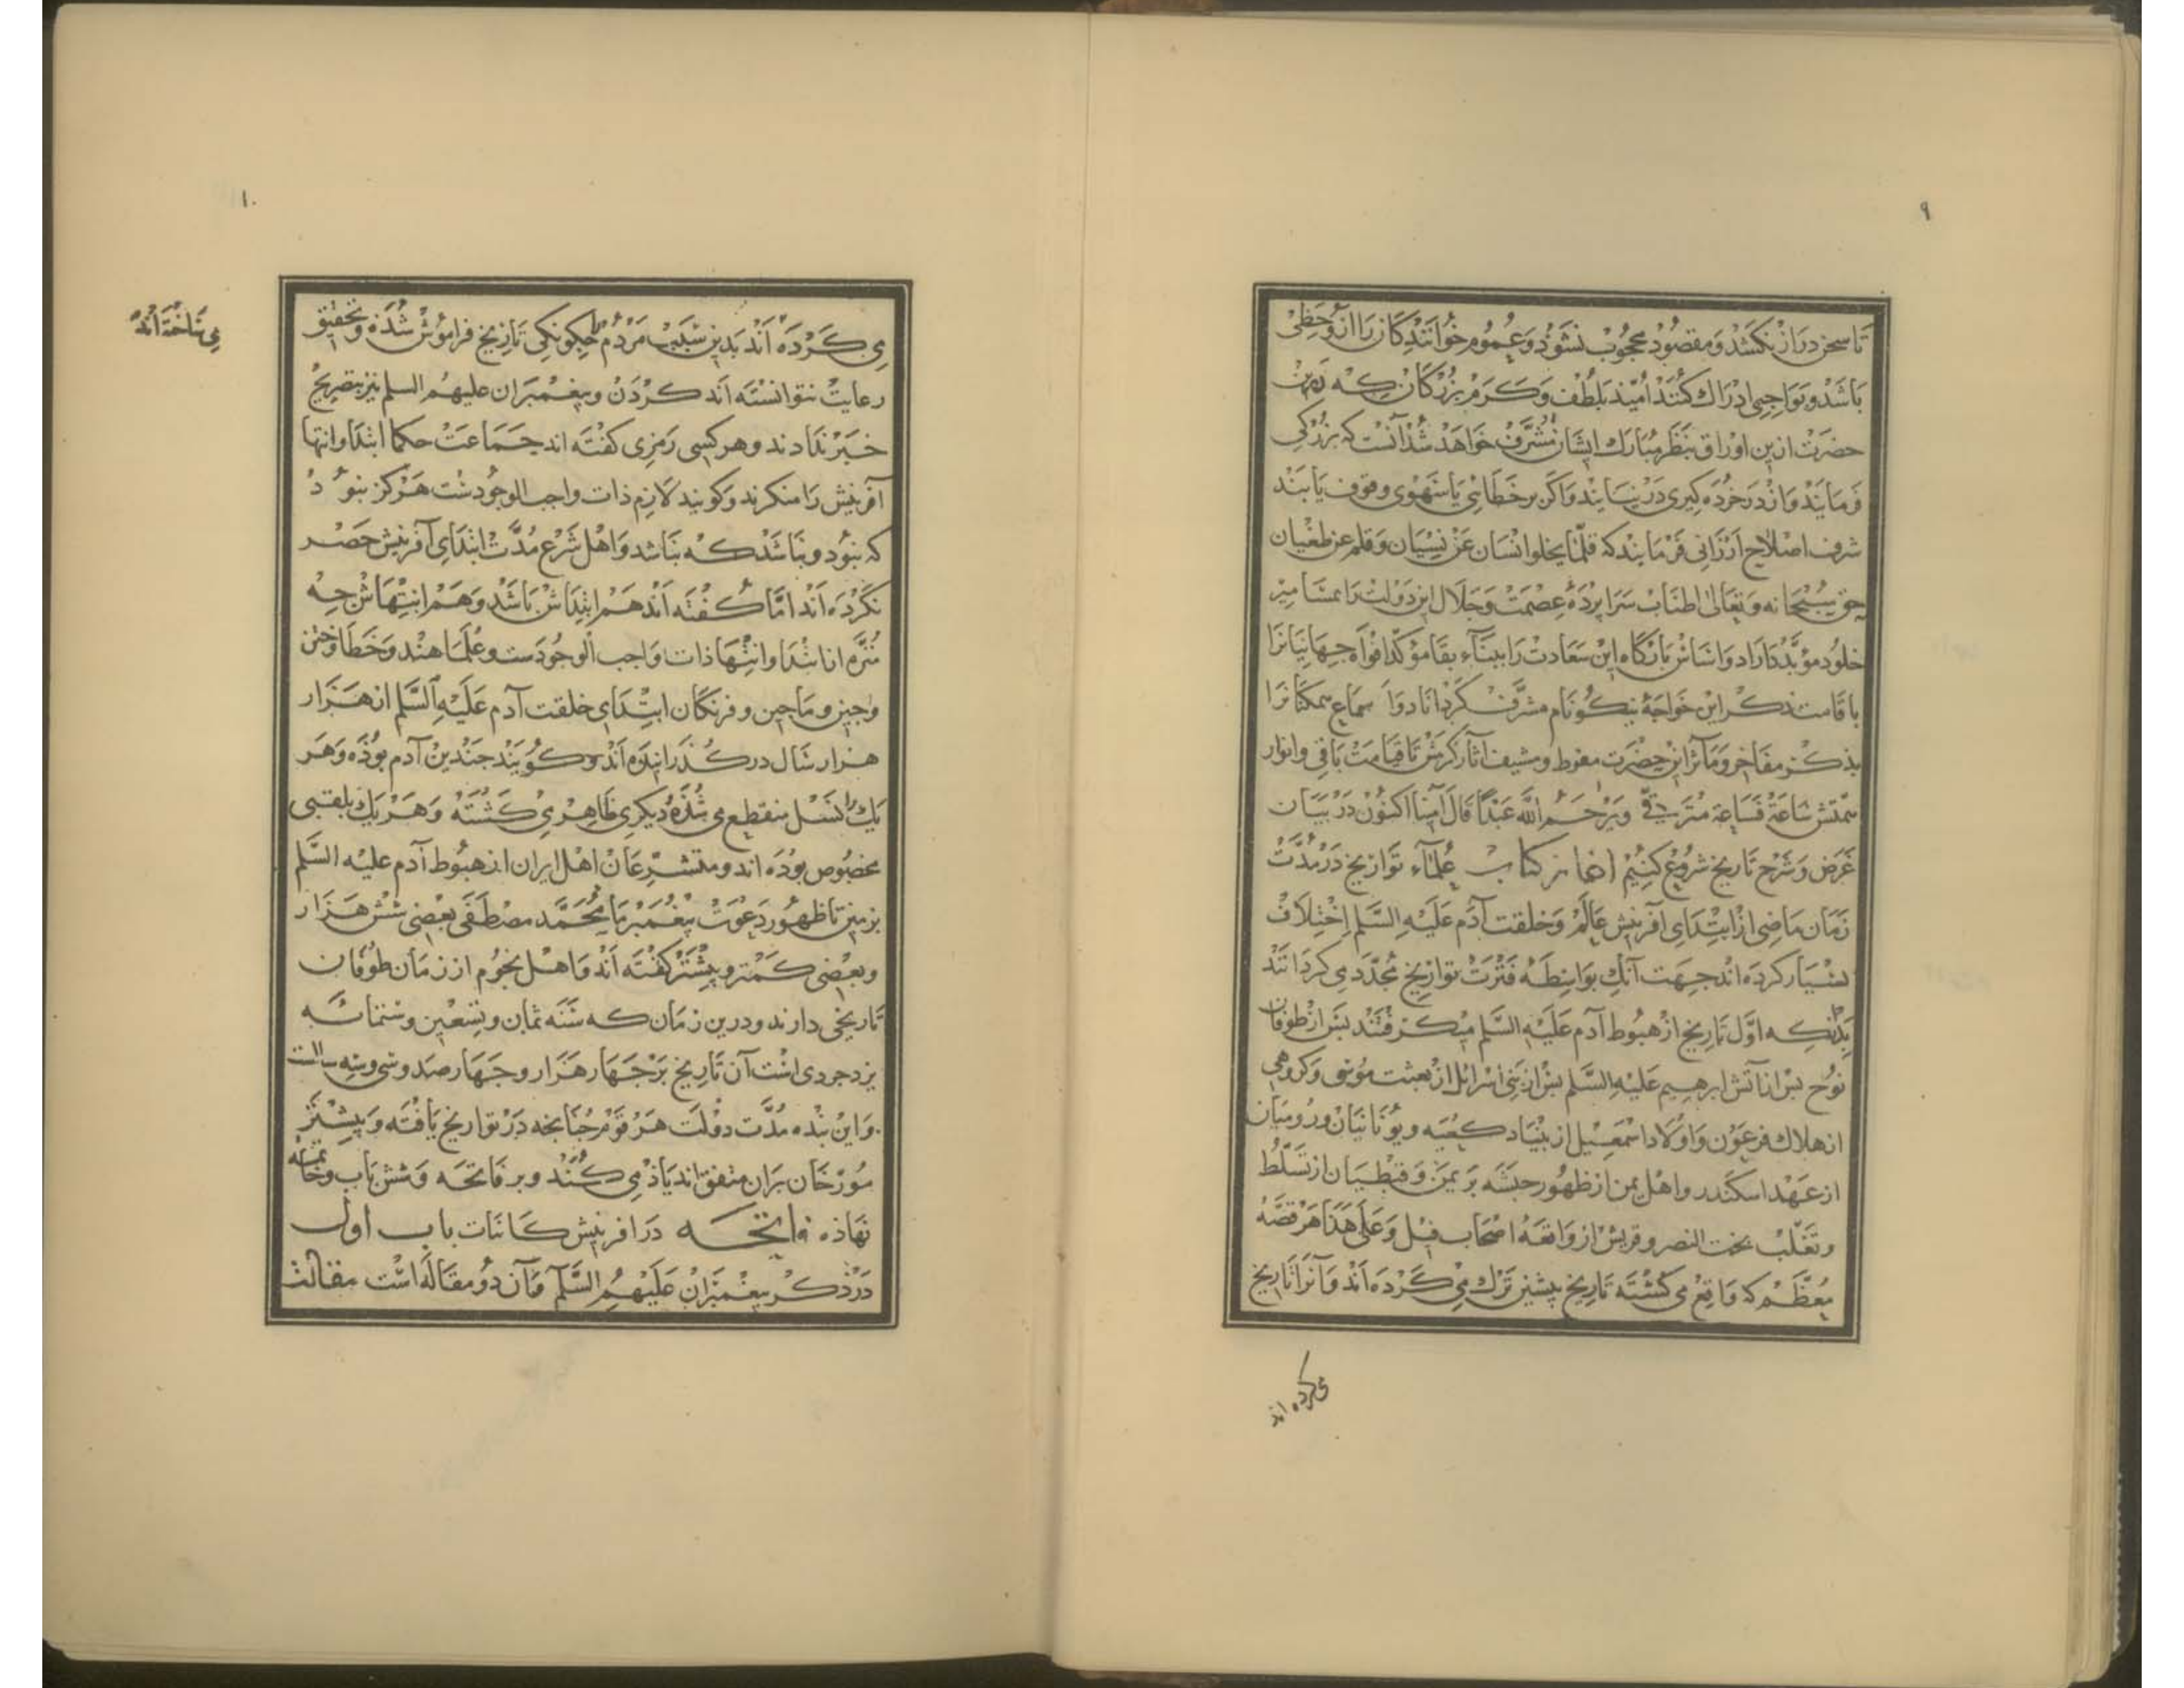 ٩
تا سخن دراز نکشد و مقصود محجوب نشود و عموم خوانندکان را از او حظی
باشد و تواجبی ادراک کنند امید بلطف و کرم بزرکان که
حضرت ازین اوراق بنظر مبارک ایشان مشرف خواهد شد آنست که بزرکی
فرمایند و اندر خرده کیری در نیایند و اکر بر خطائی یا سهوی وقوف یابند
شرف اصلاح ارزانی فرمایند که قلّما یخلوا انسان عن نسیان و قلم عن طغیان
حق سبحانه و تعالی اطناب سراپرده عصمت و جلال این دولت را بمسامیر
خلود مؤبّد داراد و اساس بارکاه این سعادت را ببناء بقا مؤکد افواه جهانیانرا
باقامت ذکر این خواجۀ نیکونام مشرّف کرداناد و اسماع سمکنانرا
بذکر مفاخر و مآثر این حضرت مقرط و مشنف آثار کرمش تا قیامت باقی و انوار
سمتش ساعة فساعة مترقی و یرحم الله عبدا قال آمینا اکنون در بیان
غرض و شرح تاریخ شروع کنیم اغاز کتاب علماء تواریخ در مدّت
زمان ماضی از ابتدای آفرینش عالم و خلقت آدم علیه السّلم اختلاف
بسیار کرده اند جهت آنک بواسطه فترت تواریخ مجدّد می کردانند
بدانکه اوّل تاریخ از هبوط آدم علیه السّلم میکرفتند بس از طوفان
نوح بس از آتش ابرهیم علیه السّلم بس از بنی اسرائل از بعثت موسی و کروهی
از هلاک فرعون و اولاد اسمعیل از بنیاد کعبه و یونانیان و رومیان
از عهد اسکندر و اهل یمن از ظهور حبشه بر یمن و قبطیان از تسلّط
و تغلّب بخت النصر و قریش از واقعه اصحاب فیل و علی هذا هر قصّه
معظّم که واقع می کشته تاریخ پیشین ترک می کرده اند و آنرا تاریخ
می کرده اند
١٠
می کرده اند بدین سبب مردم را چکونکی تاریخ فراموش شده و تحقیق
می ساخته اند
رعایت نتوانسته اند کردن و پیغمبران علیهم السلم نیز بتصریح
خبر ندادند و هر کسی رمزی کفته اند جماعت حکما ابتدا و انتها
آفرینش را منکرند و کویند لازم ذات واجب الوجودست هرکز نبود
که نبود و نباشد که نباشد و اهل شرع مدّت ابتدای آفرینش حصر
نکرده اند امّا کفته اند هم ابتداش باشد و هم انتهاش چه
منزّه از ابتدا و انتها ذات واجب الوجودست و علما هند و خطا و ختن
و چین و ماچین و فرنکان ابتدای خلقت آدم علیه السّلم از هزار
هزار سال در کذرانیده اند و کویند جندین آدم بوذه و هر
یک را نسل منقطع می شده دیکری ظاهر می کشته و هر یک بلقبی
مخصوص بوده اند و متشرّعان اهل ایران از هبوط آدم علیه السّلم
بزمین تا ظهور دعوت پیغمبر ما محمّد مصطفی بعضی شش هزار
و بعضی کمتر و بیشتر کفته اند و اهل نجوم از زمان طوفان
تاریخی دارند و درین زمان که سنه ثمان و تسعین و ستمائه
یزدجردی است آن تاریخ بر جهار هزار و جهار صد و سی و سه سالست
و این بنده مدّت دولت هر قوم جنانجه در تواریخ یافته و بیشتر
مورّخان بران متفق اند یاذ می کند و بر فاتحه و شش باب و خاتمه
نهاذه فاتحه در افرینش کاینات باب اول
در ذکر پیغمبران علیهم السّلم و آن دو مقاله است مقالت